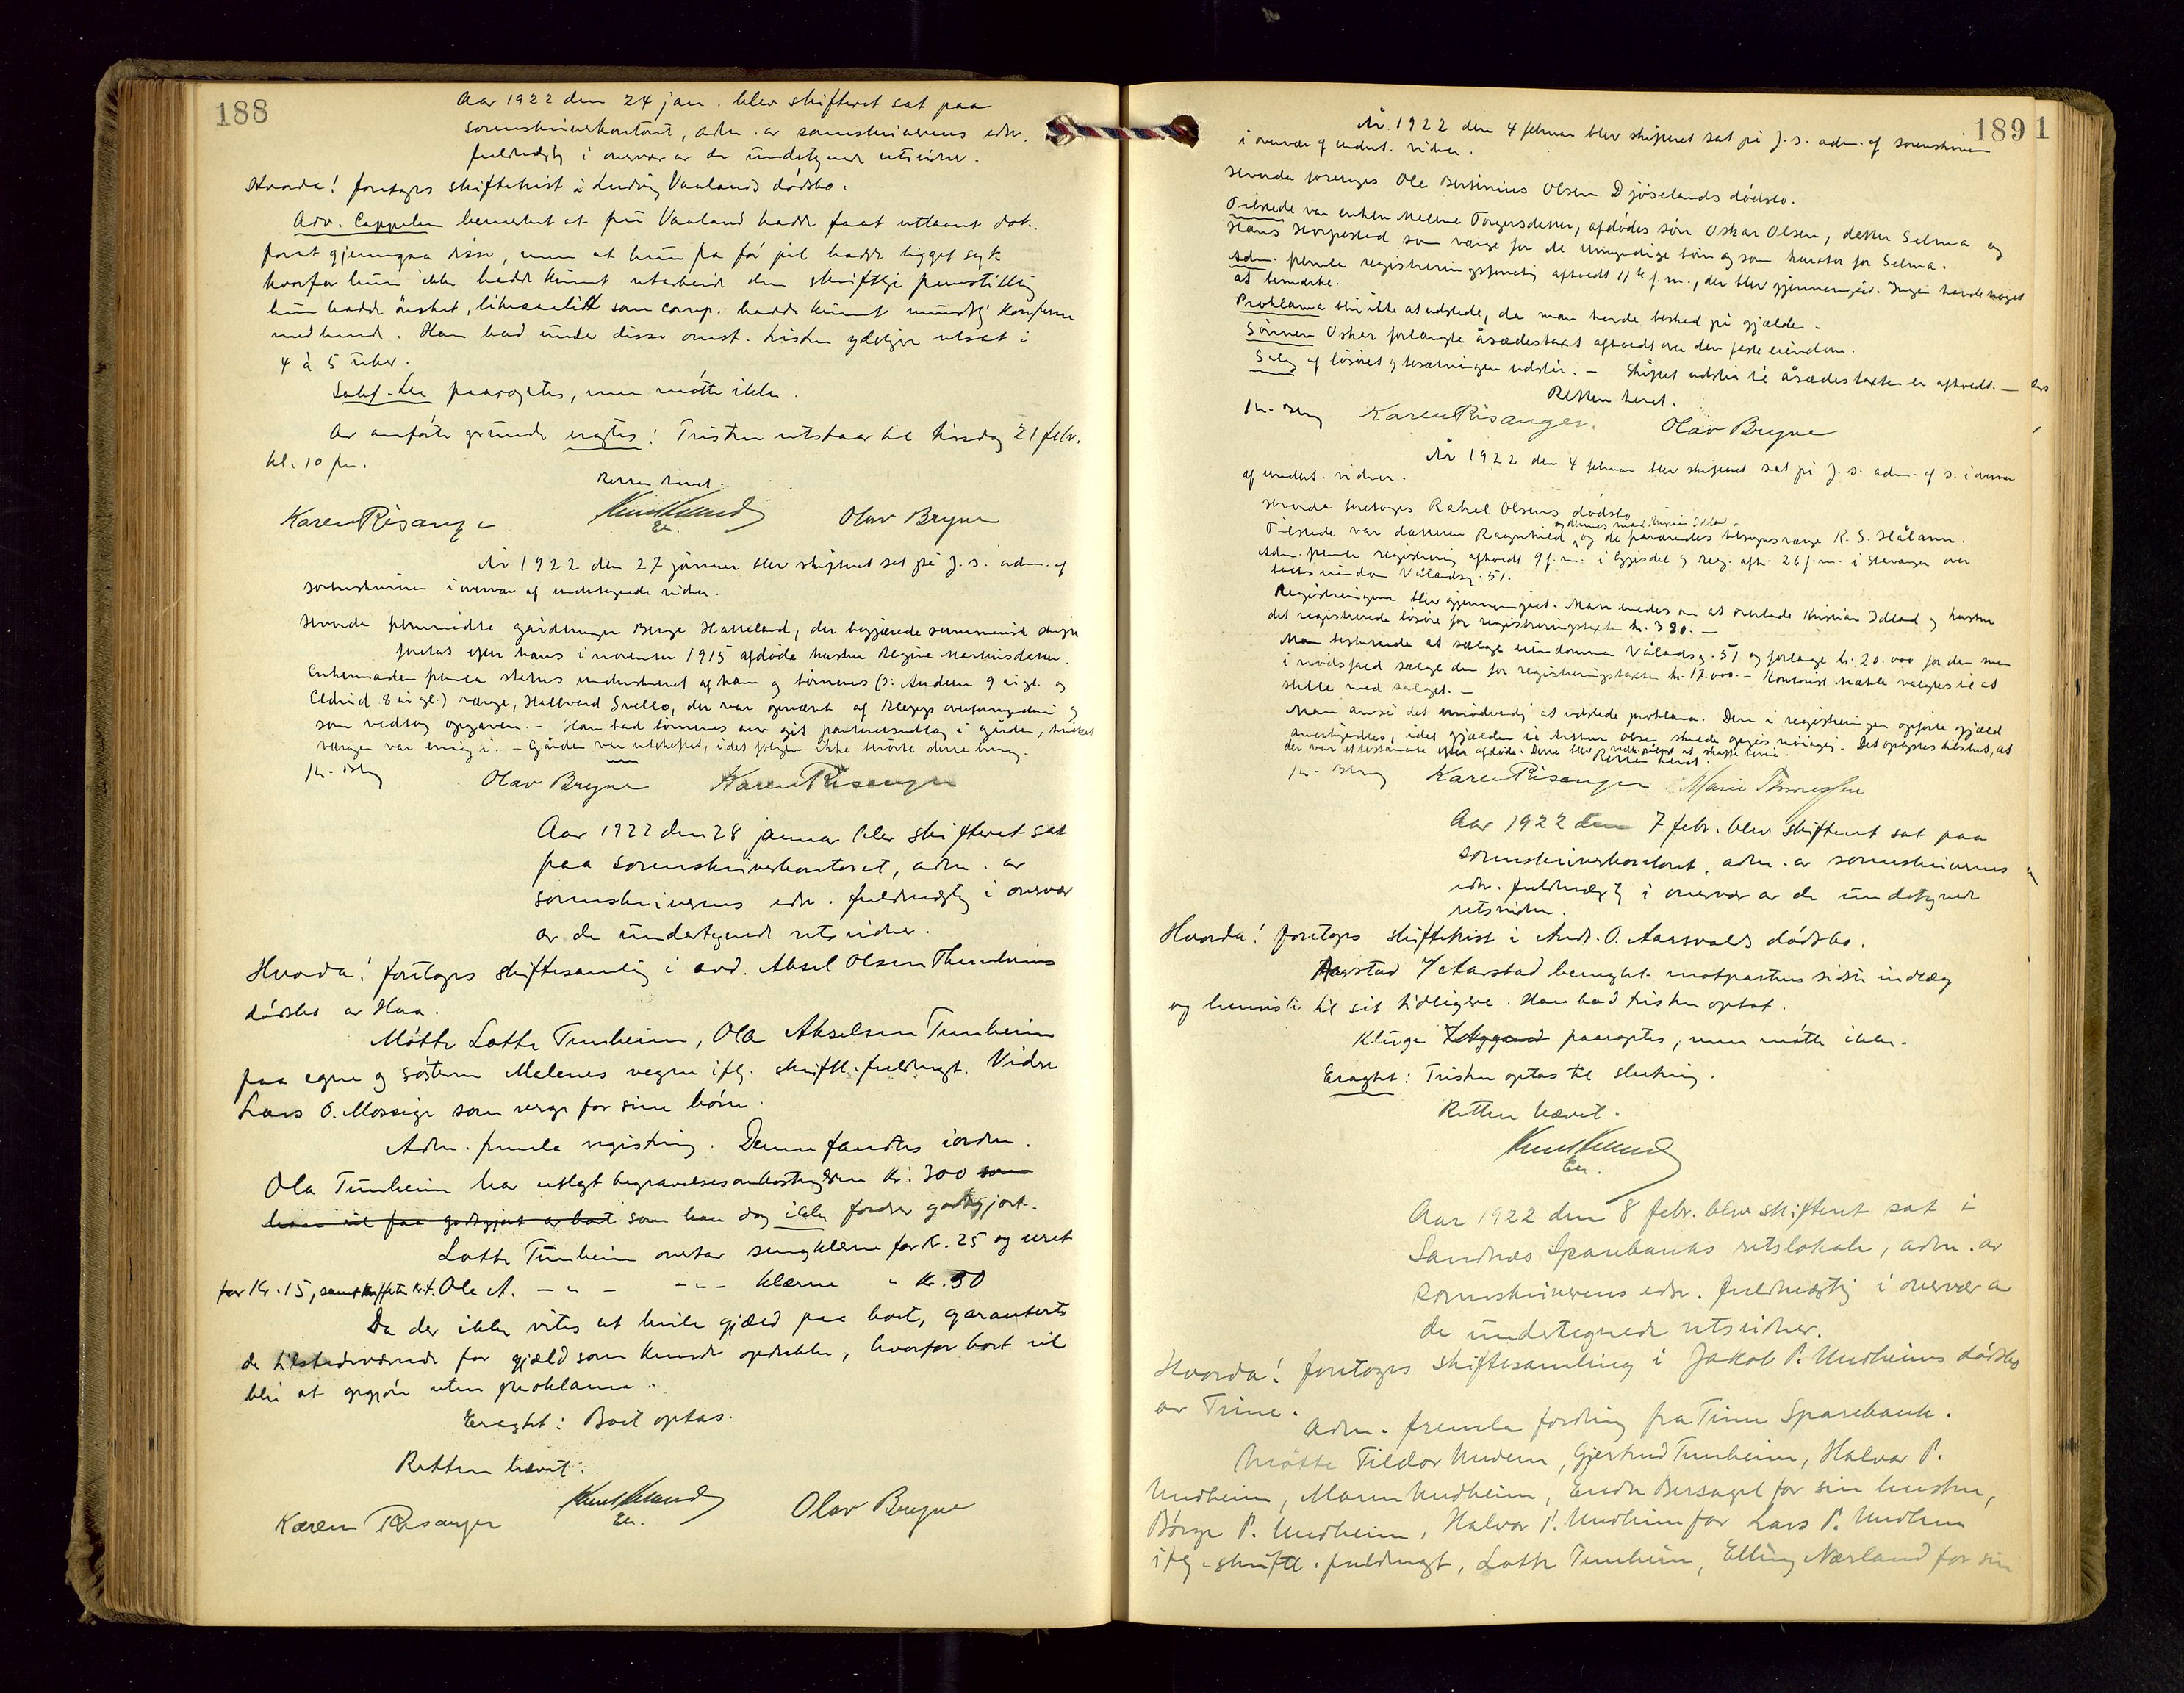 188
Aar 1922 den 24 jan. blev skifteret sat paa
sorenskriverkontoret, adm. av sorenskriverens edsv.
fuldmægtig i overvær av de undertegnede retsvidner.
Hvorda! foretoges skiftetvist i Ludvig Vaalands dødsbo.
Adv. Cappelen bemerket at fru Vaaland hadde faat utlaant dok.
for at gjennemgaa disse, men at hun fra før jul hadde ligget syk
hvorfor hun ikke hadde kunnet utarbeide den skriftlige fremstilling
hun hadde ønsket, likesaalidt som comp. hadde kunnet mundtlig konferere
med hende. Han bad under disse omst. tvisten yderligere utsat i
4 à 5 uker.
Sakf. Lie paaroptes, men møtte ikke.
Av anførte grunde eragtes: Tvisten utstaar til tirsdag 21 febr.
kl. 10 fm.
Retten hævet.
Karen Risanger
En.
Olav Bryne
År 1922 den 27 januar blev skifteret sat på J. s. adm. af
sorenskriveren i overvær af undertegnede vidner.
Hvorda fremmødte gårdbruger Børge Hatteland, der begjærede summarisk skifte
foretat efter hans i november 1915 afdøde hustru Regine Martinsdatter.
Enkemanden fremla status underskrevet af ham og børnenes (o: Andreas 9 år gl. og
Eldrid 8 år gl.) værge, Hallvard Svello, der var opnævnt af Klepps overformynderi og
som vedtog opgaven. - Han bad børnenes arv git panteutlæg i gården, hvilket
værgen var enig i. - Gården var uteheftet, idet følgen ikke hørte denne brug.
Olav Bryne Karen Risanger
Aar 1922 den 28 januar blev skifteret sat
paa sorenskriverkontoret, adm. av
sorenskriverens edsv. fuldmægtig i overvær
av de undertegnede retsvidner.
Hvorda! foretoges skiftesamling i avd. Aksel Olsen Thunheims
dødsbo av Haa.
Møtte Lotte Tunheim, Ola Akselsen Tunheim
paa egne og søsteren Malenes vegne ifg. skriftl. fuldmagt. Videre
Lars O. Mossige som verge for sine børn.
Adm. fremla registrering. Denne fandtes i orden.
Ola Tunheim har utlagt begravelsesomkostningerne kr. 300 som
han vil faa godtgjort av boet som han dog ikke fordrer godtgjort.
Lotte Tunheim overtar sengklærne for kr. 25 og uret
for kr. 15, samt kuffert kr. 4. Ole A. - " - - " - klærne " kr. 30
Da der ikke vites at hvile gjæld paa boet, garanterte
de tilstedeværende for gjæld som kunde opdukke, hvorfor boet vil
bli at opgjøre uten proklama.
Eragtet: Boet optas.
Retten hævet.
Karen Risanger
En.
Olav Bryne
189 1
År 1922 den 4 februar blev skifteret sat på J. s. adm. af sorenskriveren
i overvær af undert. vidner.
Hvorda foretoges Ole Bertinius Olsen Djøselands dødsbo.
Tilstede var enken Malene Torgersdatter, afdødes søn Oskar Olsen, datter Selma og
Hans Horpestad som værge for de umyndige børn og som kurator for Selma.
Adm. fremla registreringsforretning afholdt 11te f. m., der blev gjennemgået. Ingen havde noget
at bemærke.
Proklama blir ikke at udstede, da man havde besked på gjælden.
Sønnen Oskar forlangte åsædestaxt afholdt over den faste eiendom.
Salg af løsøret og besætningen udstår. - Skiftet udstår til åsædestaxten er afholdt. -
Retten hævet.
Karen Risanger. Olav Bryne
År 1922 den 4 februar blev skifteret sat på J. s. adm. af s. i overvær
af undert. vidner.
Hvorda foretoges Rakel Olsens dødsbo.
og dennes mand Kristian Idland
Tilstede var datteren Ragnhild, og de fraværendes tilsynsværge K. S. Håland.
Adm. fremla registrering afholdt 9 f. m. i Gjesdal og reg. afh. 26 f. m. i Stavanger over
boets eiendom Vålandsg. 51.
Registreringerne blev gjennemgået. Man enedes om at overlade Kristian Idland og hustru
det registrerede løsøre for registreringstaxten kr. 380. -
Man besluttede at sælge eiendommen Vålandsg. 51 og forlange kr. 20.000 for den men
i nødsfald sælge den for registreringstaxten kr. 17.000. - Kontorist Mæhle valgtes til at
stelle med salget. -
Man anså det unødvendig at udstede proklama. Den i registreringen opførte gjæld
anerkjendtes, idet gjælden til Kristen Olsen skulde opgis nøiagtig. Det oplystes tilslut, at
der var et testamente efter afdøde.
Retten hævet.
Karen Risanger Marie Tønnessen
Aar 1922 den 7 febr. blev skifteret sat paa
sorenskriverkontoret, adm. av sorenskriverens
edsv. fuldmægtig i overvær av de undertegnede
retsvidner.
Hvorda! foretoges skiftetvist i Andr. O. Aarsvolds dødsbo.
Aarstad v/ Aarstad benegtet motpartens sidste indlæg
og henviste til sit tidligere. Han bad tvisten optat.
Kluge paaroptes, men møtte ikke.
Eragtet: Tvisten optas til slutning.
Retten hævet.
En.
Aar 1922 den 8 febr. blev skifteret sat i
Sandnes Sparebanks retslokale, adm. av
sorenskriverens edsv. fuldmægtig i overvær av
de undertegnede retsvidner.
Hvorda! foretoges skiftesamling i Jakob P. Undheims dødsbo
av Time.
Adm. fremla fordring fra Time Sparebank.
Møtte Tildor Undem, Gjertrud Tunheim, Halvor P.
Undheim, Maren Undheim, Endre Bersagel for sin hustru,
Børge P. Undheim, Halvor P. Undheim for Lars P. Undheim
ifg. skriftl. fuldmagt, Lotte Tunheim, Elling Nærland for sin